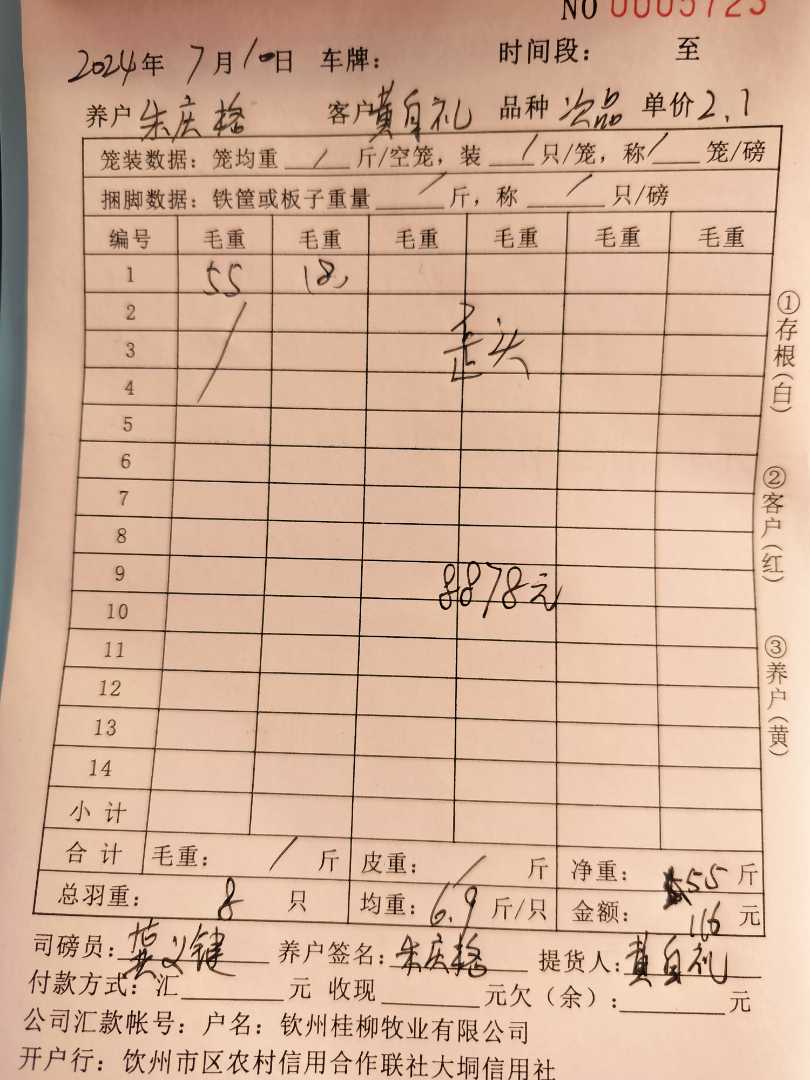 NO 0005723
2024年 7月10日 车牌： 时间段： 至
养户 朱庆格 客户 黄自礼 品种 次品 单价 2.1
笼装数据：笼均重 / 斤/空笼，装 / 只/笼，称 / 笼/磅
捆脚数据：铁筐或板子重量 / 斤，称 / 只/磅
编号 毛重 毛重 毛重 毛重 毛重 毛重
1 55 (8)
2 /
3 歪头
4
5
6
7
8
9 8878元
10
11
12
13
14
小计
合计 毛重： / 斤 皮重： / 斤 净重： 55 斤
总羽重： 8 只 均重： 6.9 斤/只 金额： 116 元
司磅员： 义键 养户签名： 朱庆格 提货人： 黄自礼
付款方式：汇 元 收现 元欠（余）： 元
公司汇款帐号：户名：钦州桂柳牧业有限公司
开户行：饮州市区农村信用合作联社大垌信用社
①存根（白）
②客户（红）
③养户（黄）